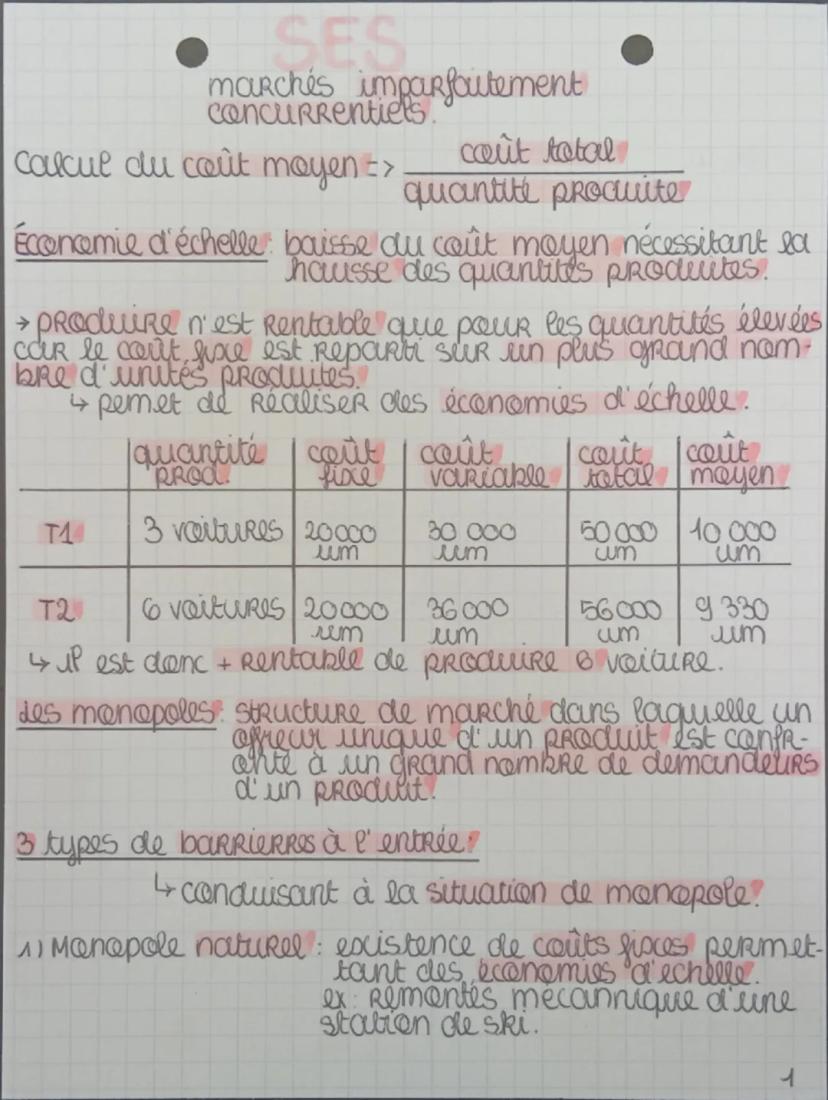 SES
marchés imparfaitement
concurrentiels.
calcul du coût moyen => coût total
quantité produite
Économie d'échelle: baisse du coût moyen nécessitant la
hausse des quantités produites.
→ produire n'est rentable que pour les quantités élevées
car le coût fixe est reparti sur un plus grand nom-
bre d'unités produites.
↳ pemet de réaliser des économies d'échelle.
quantité prod. coût fixe coût variable coût total coût moyen
T1 3 voitures 20000 um 30 000 um 50000 um 10 000 um
T2 6 voitures 20000 um 36000 um 56000 um 9 330 um
↳ il est donc + rentable de produire 6 voiture.
les monopoles: structure de marché dans laquelle un
offreur unique d'un produit est confr-
onté à un grand nombre de demandeurs
d'un produit.
3 types de barrierres à l'entrée:
↳ conduisant à la situation de monopole.
1) Monopole naturel: existence de coûts fixes permet-
tant des économies d'échelle.
ex: remontés mécannique d'une
station de ski.
1